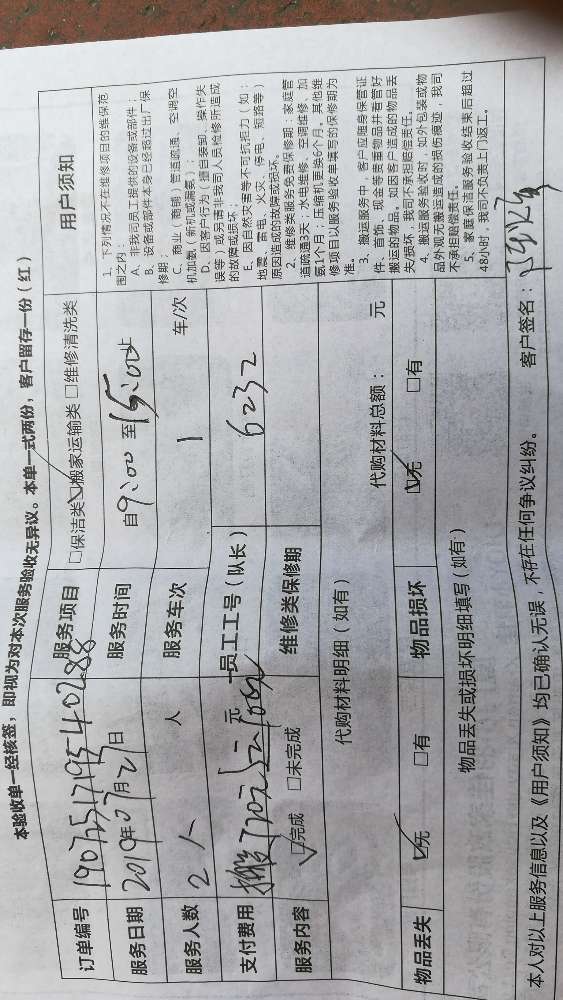 本验收单一经核签，即视为对本次服务验收无异议。本单一式两份，客户留存一份（红）
订单编号 1907251719540288
服务项目 □保洁类 ☑搬家运输类 □维修清洗类
服务日期 2019年07月27日
服务时间 自9:00至15:00止
服务人数 2人 人
服务车次 1 车/次
支付费用 元
员工工号（队长） 6232
服务内容 ☑完成 □未完成
维修类保修期
代购材料明细（如有）
代购材料总额： 元
物品丢失 ☑无 □有
物品损坏 ☑无 □有
物品丢失或损坏明细填写（如有）
用户须知
1、下列情况不在维修项目的维保范
围之内：
A、非我司员工提供的设备或部件；
B、设备或部件本身已经超过出厂保
修期；
C、商业（商铺）管道疏通、空调空
机加氨（新机或漏氨）；
D、因客户行为（擅自装卸、操作失
误等）或另请非我司人员检修所造成
的故障或损坏；
E、因自然灾害等不可抗拒力（如：
地震、雷电、火灾、停电、短路等）
原因造成的故障或损坏。
2、维修类服务免费保修期：家庭管
道疏通3天；水电维修、空调维修、加
氨1个月；压缩机更换6个月。其他维
修项目以服务验收单填写的保修期为
准。
3、搬运服务中，客户应随身保管证
件、首饰、现金等贵重物品并看管好
搬运的物品。如因客户造成的物品丢
失/损坏，我司不承担赔偿责任。
4、搬运服务验收时，如外包装或物
品外观无搬运造成的损伤痕迹，我司
不承担赔偿责任。
5、家庭保洁服务验收结束后超过
48小时，我司不负责上门返工。
本人对以上服务信息以及《用户须知》均已确认无误，不存在任何争议纠纷。 客户签名：